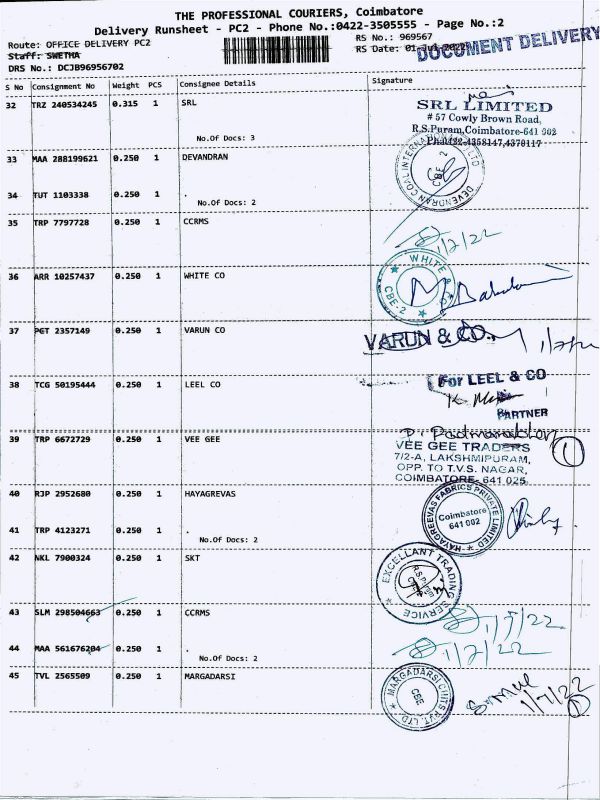 THE PROFESSIONAL COURIERS, Coimbatore
Delivery Runsheet - PC2 - Phone No.:0422-3505555 - Page No.:2
Route: OFFICE DELIVERY PC2
RS No.: 969567
Staff: SWETHA
RS Date: 01-Jul-2022
DOCUMENT DELIVERY
DRS No.: DCJB96956702
S No Consignment No Weight PCS Consignee Details Signature
32 TRZ 240534245 0.315 1 SRL
No.Of Docs: 3
SRL LIMITED
# 57 Cowly Brown Road,
R.S.Puram,Coimbatore-641 002
Ph:0422-4358147,4370117
33 MAA 288199621 0.250 1 DEVANDRAN
DEVENDRAN COAL INTERNATIONAL PVT LTD
CBE 2
34 TUT 1103338 0.250 1 .
No.Of Docs: 2
35 TRP 7797728 0.250 1 CCRMS
1/7/22
36 ARR 10257437 0.250 1 WHITE CO
WHITE & CO
CBE-2
37 PGT 2357149 0.250 1 VARUN CO
VARUN & CO.
38 TCG 50195444 0.250 1 LEEL CO
For LEEL & CO
PARTNER
39 TRP 6672729 0.250 1 VEE GEE
VEE GEE TRADERS
7/2-A, LAKSHMIPURAM,
OPP. TO T.V.S. NAGAR,
COIMBATORE- 641 025
1
40 RJP 2952680 0.250 1 HAYAGREVAS
HAYAGREEVAS FABRICS PRIVATE LIMITED
Coimbatore
641 002
41 TRP 4123271 0.250 1 .
No.Of Docs: 2
42 NKL 7900324 0.250 1 SKT
EXCELLANT TRADING SERVICE
43 SLM 298504663 0.250 1 CCRMS
1/7/22
44 MAA 561676204 0.250 1 .
No.Of Docs: 2
1/7/22
45 TVL 2565509 0.250 1 MARGADARSI
MARGADARSI CHITS PVT. LTD
CBE
1/7/22
1